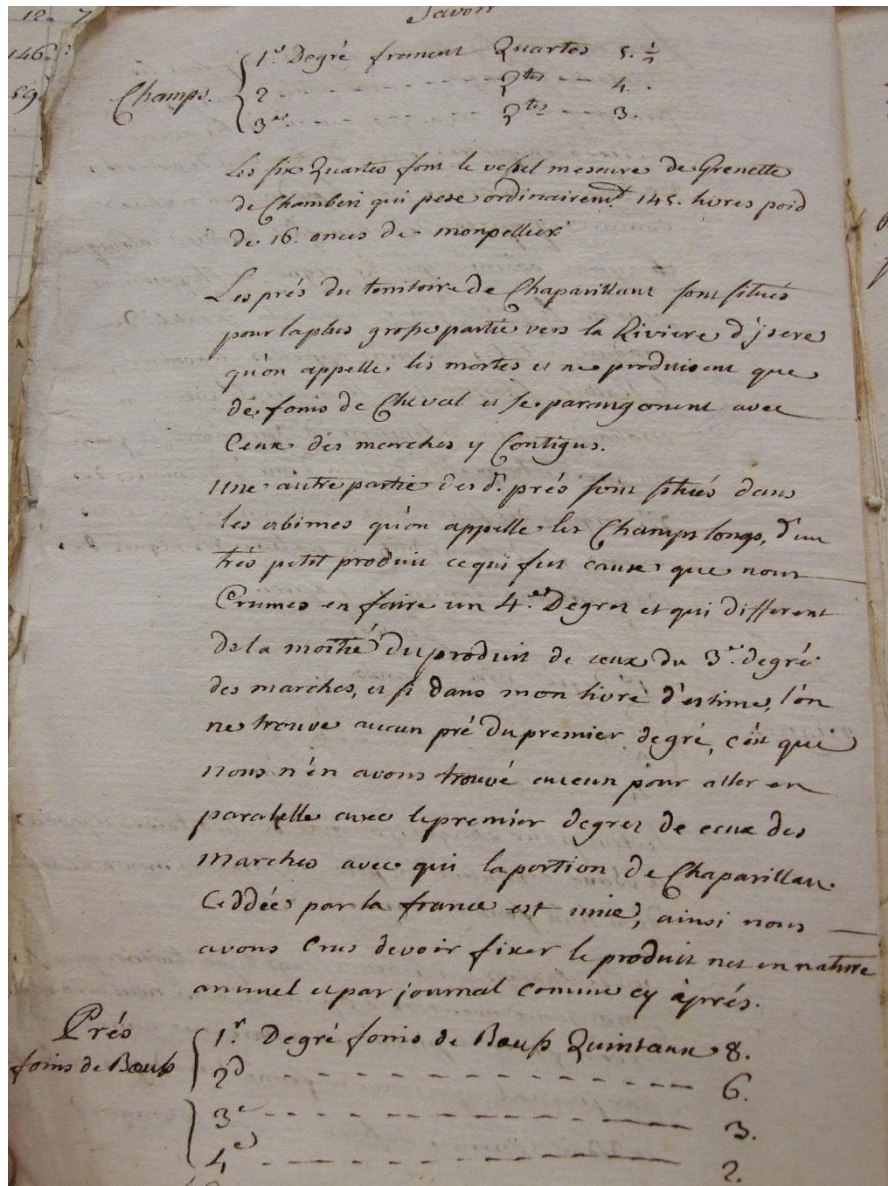 12. 7.
146.
59.
Savoir
Champs.
1.er Degré froment Quartes 5. 1/2
2 - - - - - - Q.tes - - 4.
3.e - - - - - - Q.tes - - 3.
Les six Quartes font le vessel mesure de Grenette
de Chamberi qui pese ordinairem.t 145. livres poid
de 16. onces de monpellier.
Les prés du territoire de Chaparillant sont situés
pour la plus grosse partie vers la Riviere d'jsere
qu'on appelle les mortes et ne produisent que
de foins de Cheval et se parangonent avec
Ceux des marches y Contigus.
Une autre partie des d.s prés sont situés dans
les abimes qu'on appelle les Champs longs, d'un
trés petit produit ce qui fut cause que nous
Crumes en faire un 4.e Degrez et qui different
de la moitié du produit de ceux du 3.e degré
des marches, et si dans mon livre d'estime, l'on
ne trouve aucun pré du premier degré, c'est que
nous n'en avons trouvé aucun pour aller en
paralelle avec le premier degrez de ceux des
Marches avec qui la portion de Chaparillan
Ceddée par la france est unie, ainsi nous
avons Crus devoir fixer le produit net en nature
annuel et par journal comme cy àprés.
Prés
foins de Bœufs
1.r Degré foins de Bœufs Quintaux 8.
2.d - - - - - - - - - - 6.
3.e - - - - - - - - - - 3.
4.e - - - - - - - - - - 2.